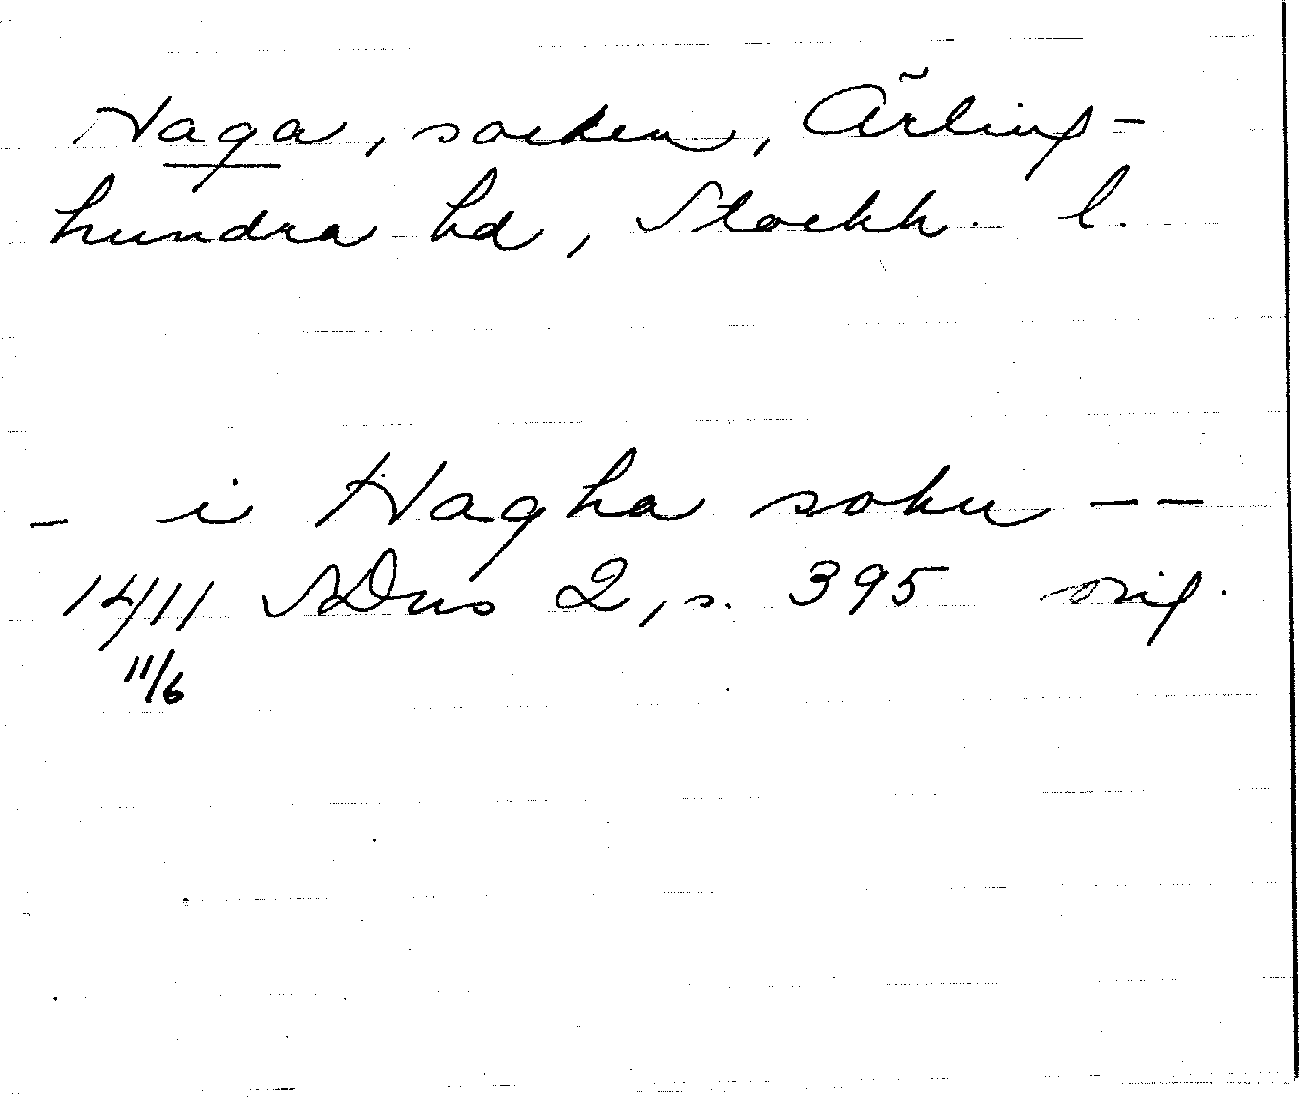 Haga, socken, Ärling-
hundra hd, Stockh. l.
- i Hagha sokn --
1411 SDns 2, s. 395 orig.
11/6